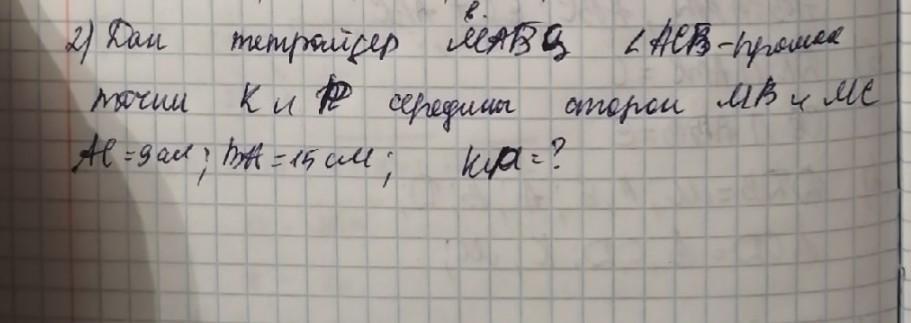 2) Дан тетраидер МАВС, <АСВ-прямая
точки К и Р середины сторон МВ и МС
АС=9см; ВА=15см; КР=?